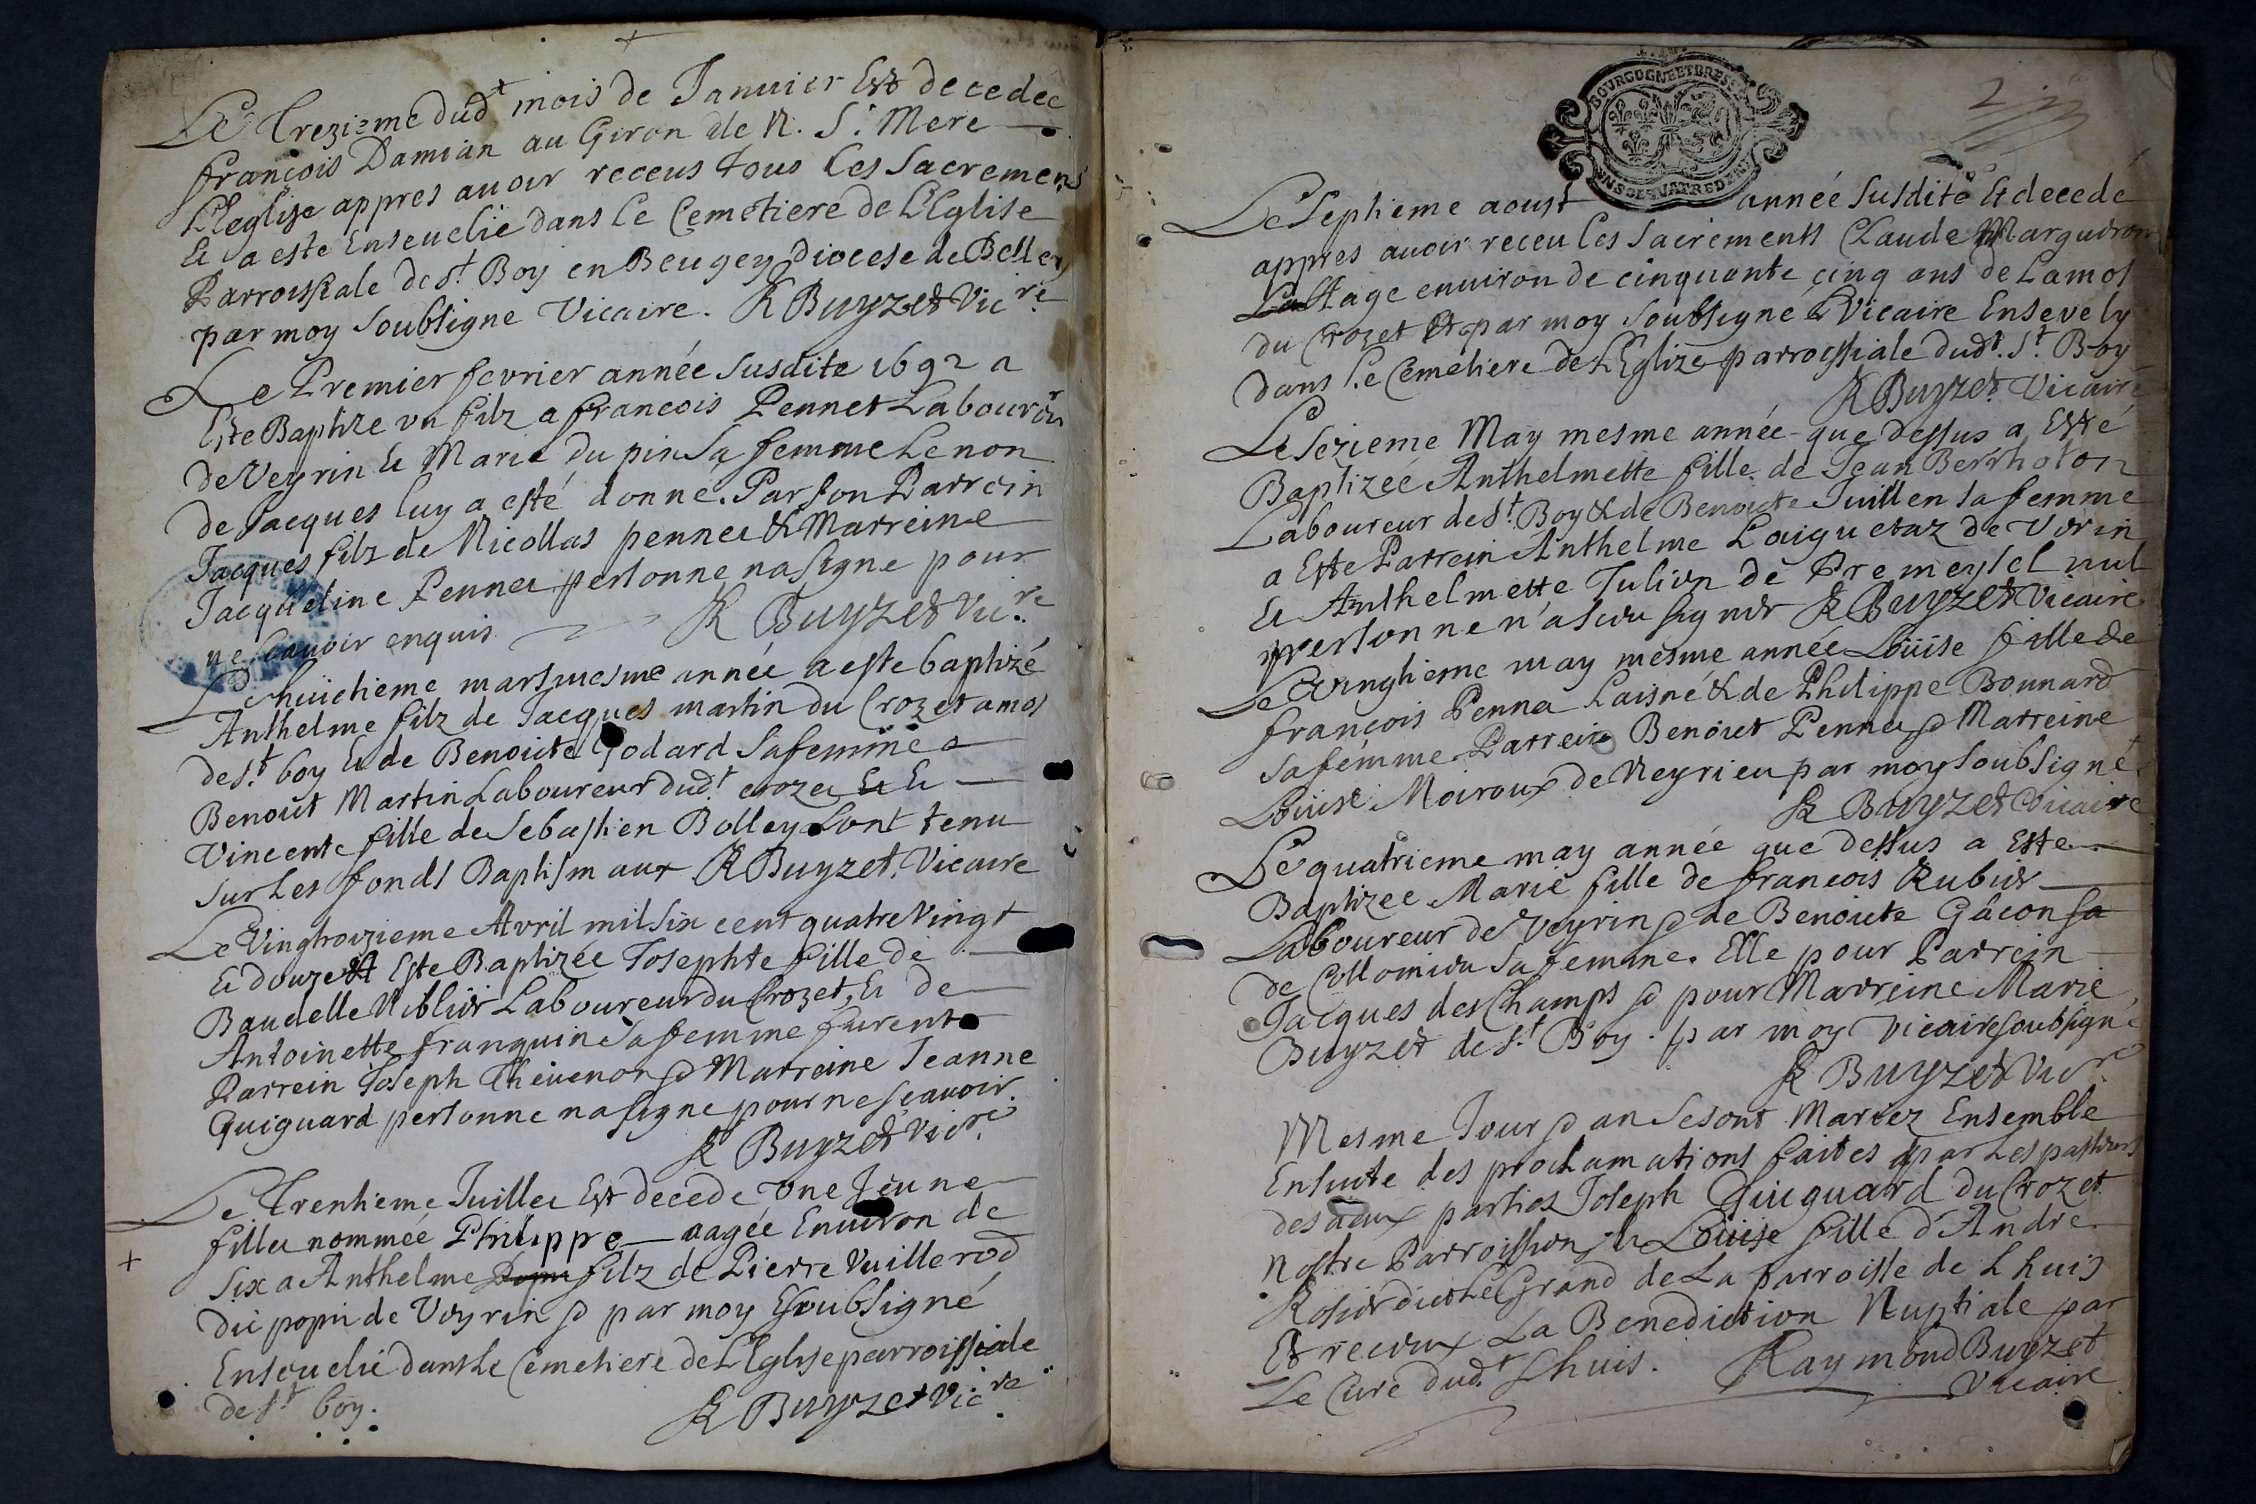 Le Trezieme dud.t mois de Januier Est decedeé
françois Damian au Giron de N. S.t Mere
L'leglise appres auoir receus tous les Sacremens
Et a este Enseuelie dans le Cemetiere de L'Eglise
Parroissiale de S.t Boy en Beugey diocese de Belley
par moy soubsigne Vicaire. R Buyzet Vic.re
Le Premier fevrier année susdite 1692 a
Este Baptize vn filz a francois Pennet Laboureur
de Veyrin Et Marie du pin Sa femme Le non
de Jacques luy a esté donné. Par son Parrein
Jacques filz de Nicollas pennet & Marreine
Jacqueline Pennet personne na signe pour
ne scauoir enquis R Buyzet Vic.re
Le huictieme mars mesme année a este baptizé
Anthelme filz de Jacques martin du Crozet amos
de S.t boy Et de Benoicte Godard Sa femme
Benoit Martin Laboureur dud.t crozet Et Et
Vincente fille de Sebastien Bolley Lont tenu
sur Les fonds Baptismaux R Buyzet Vicaire
Le Vingtroizieme Avril mil six cent quatre Vingt
Et douze Este Baptizée Josephte fille de
Baudelle Niblier Laboureur du Crozet, Et de
Antoinette franquin Sa femme furent
Parrein Joseph Theuenon & Marreine Jeanne
Guiguard personne na signe pour ne scauoir.
R Buyzet Vic.re
Le Trentieme Juillet Est decede vne Jeune
fille nommée Philippe aagée Enuiron de
six a Anthelme filz de Pierre Vuillerod
dit popin de Veyrin & par moy soubsigné
Enseuelie dans Le Cemetiere de L'Eglyse parroissiale
de S.t boy. R Buyzet Vic.re
BOURGOGNE ET BRESSE
2
Le Septieme aoust année Susdite Est decedé
appres auoir receu les sacrements Claude Marguiron
Lastage enuiron de cinquante cinq ans de Lamos
du Crozet Et par moy soubsigné Vicaire Ensevely
dans le Cemetiere de L'Eglize parroissiale dud.t S.t Boy
R Buyzet Vicaire
Le sezieme May mesme année que dessus a Esté
Baptizeé Anthelmette fille de Jean Berrholon
Laboureur de S.t Boy & de Benoicte Juillen sa femme
a Este Parrein Anthelme Laiguetaz de Verin
Et Anthelmette Julien de Premeysel nul
personne n'a sceu signer R Buyzet Vicaire
Le Vingtieme may mesme année Loüise fille de
françois Pennet Laisné & de Philippe Bonnard
sa femme Parrein Benoict Pennet & Marreine
Loüise Moiroux de Neyrieu par moy soubsigné
R Buyzet Vicaire
Le quatrieme may année que dessus a Este
Baptizee Marie fille de francois Rubier
Laboureur de Veyrin & de Benoicte Gâcon sa
de Collomieu Sa femme. Elle pour Parrein
Jacques des Champs & pour Marreine Marie
Buyzet de S.t Boy. par moy vicaire soubsigné
R Buyzet Vic.re
Mesme Jour & an se sont Mariez Ensemble
Ensuite des proclamations faites par Les pasteurs
des deux parties Joseph Guiguard du Crozet
nostre Parroissien, & Loüise fille d'Andre
Rosier dict Le Grand de La parroisse de Lhuis
Et receux La Benediction Nuptiale par
Le Cure dud.t Lhuis. Raymond Buyzet
Vicaire